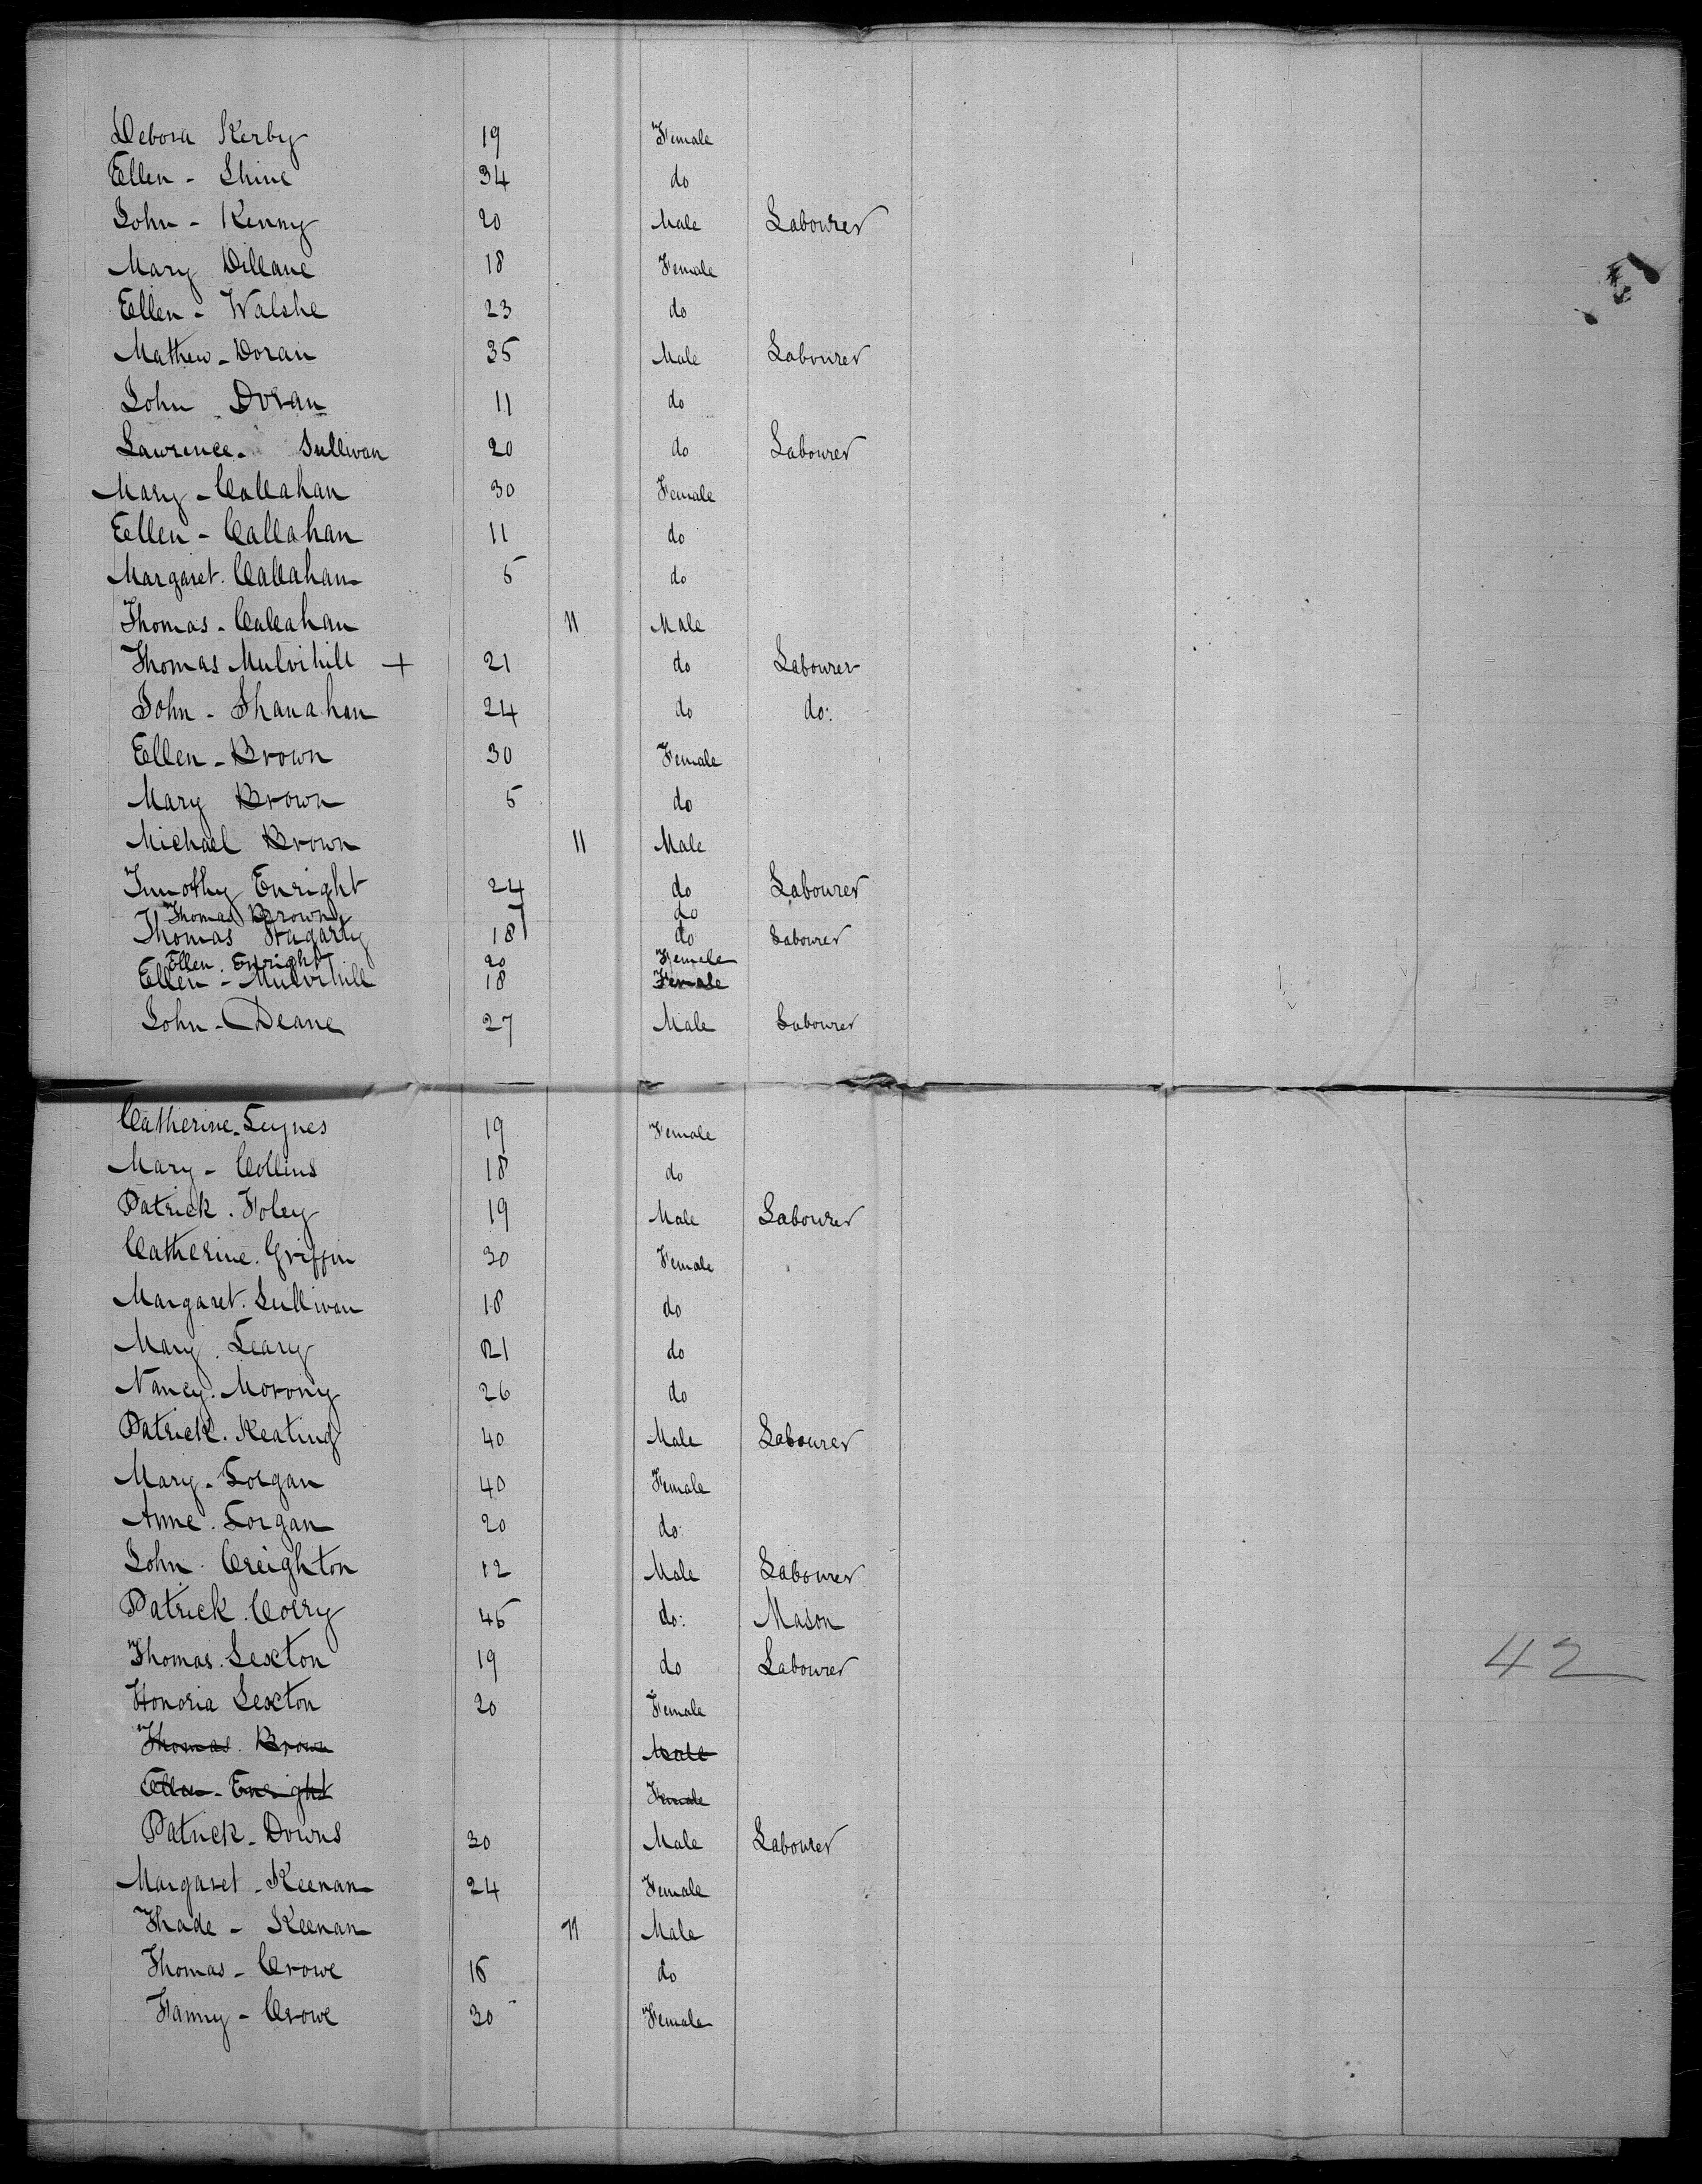 Debora Kerby 19 Female
Ellen - Shine 34 do
John - Kenny 20 Male Labourer
Mary Dillane 18 Female
Ellen - Walshe 23 do
Mathew - Doran 35 Male Labourer
John Doran 11 do
Lawrence - Sullivan 20 do Labourer
Mary - Callahan 30 Female
Ellen - Callahan 11 do
Margaret. Callahan 5 do
Thomas - Callahan 11 Male
Thomas Mulvihill + 21 do Labourer
John - Shanahan 24 do do:
Ellen - Brown 30 Female
Mary Brown 5 do
Michael Brown 11 Male
Timothy Enright 24 do Labourer
Thomas Brown 7 do
Thomas Hagarty 18 do Labourer
Ellen. Enright 20 Female
Ellen - Mulvihill 18 Female
John - Deane 27 Male Labourer
Catherine - 19 Female
Mary - Collins 18 do
Patrick. Foley 19 Male Labourer
Catherine. Griffin 30 Female
Margaret. Sullivan 18 do
Mary. Leary 21 do
Nancy. Morony 26 do
Patrick. Keating 40 Male Labourer
Mary - 40 Female
Anne. 20 do:
John. Creighton 12 Male Labourer
Patrick. 45 do: Mason
Thomas. Sexton 19 do Labourer
42
Honoria Sexton 20 Female
Thomas. Brown Male
Ellen - Enright Female
Patrick - Downs 30 Male Labourer
Margaret - Keenan 24 Female
Thade - Keenan 11 Male
Thomas - Crowe do
Fanny - Crowe 30 Female